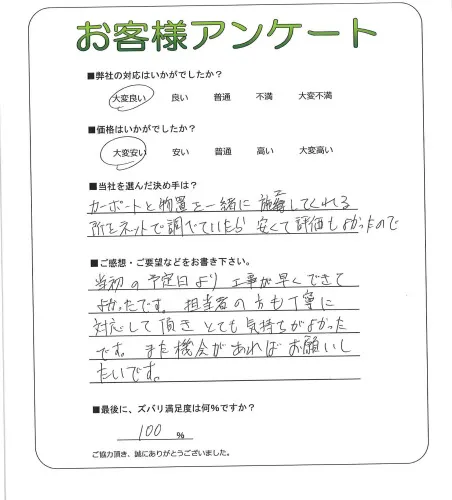 お客様アンケート
■弊社の対応はいかがでしたか？
大変良い 良い 普通 不満 大変不満
■価格はいかがでしたか？
大変安い 安い 普通 高い 大変高い
■当社を選んだ決め手は？
カーポートと物置を一緒に施工してくれる
所をネットで調べていたら 安くて評価もよかったので
■ご感想・ご要望などをお書き下さい。
当初の予定日より 工事が早くできて
よかったです。担当者の方も丁寧に
対応して頂き とても気持ちがよかった
です。また機会があればお願いし
たいです。
■最後に、ズバリ満足度は何％ですか？
100 ％
ご協力頂き、誠にありがとうございました。